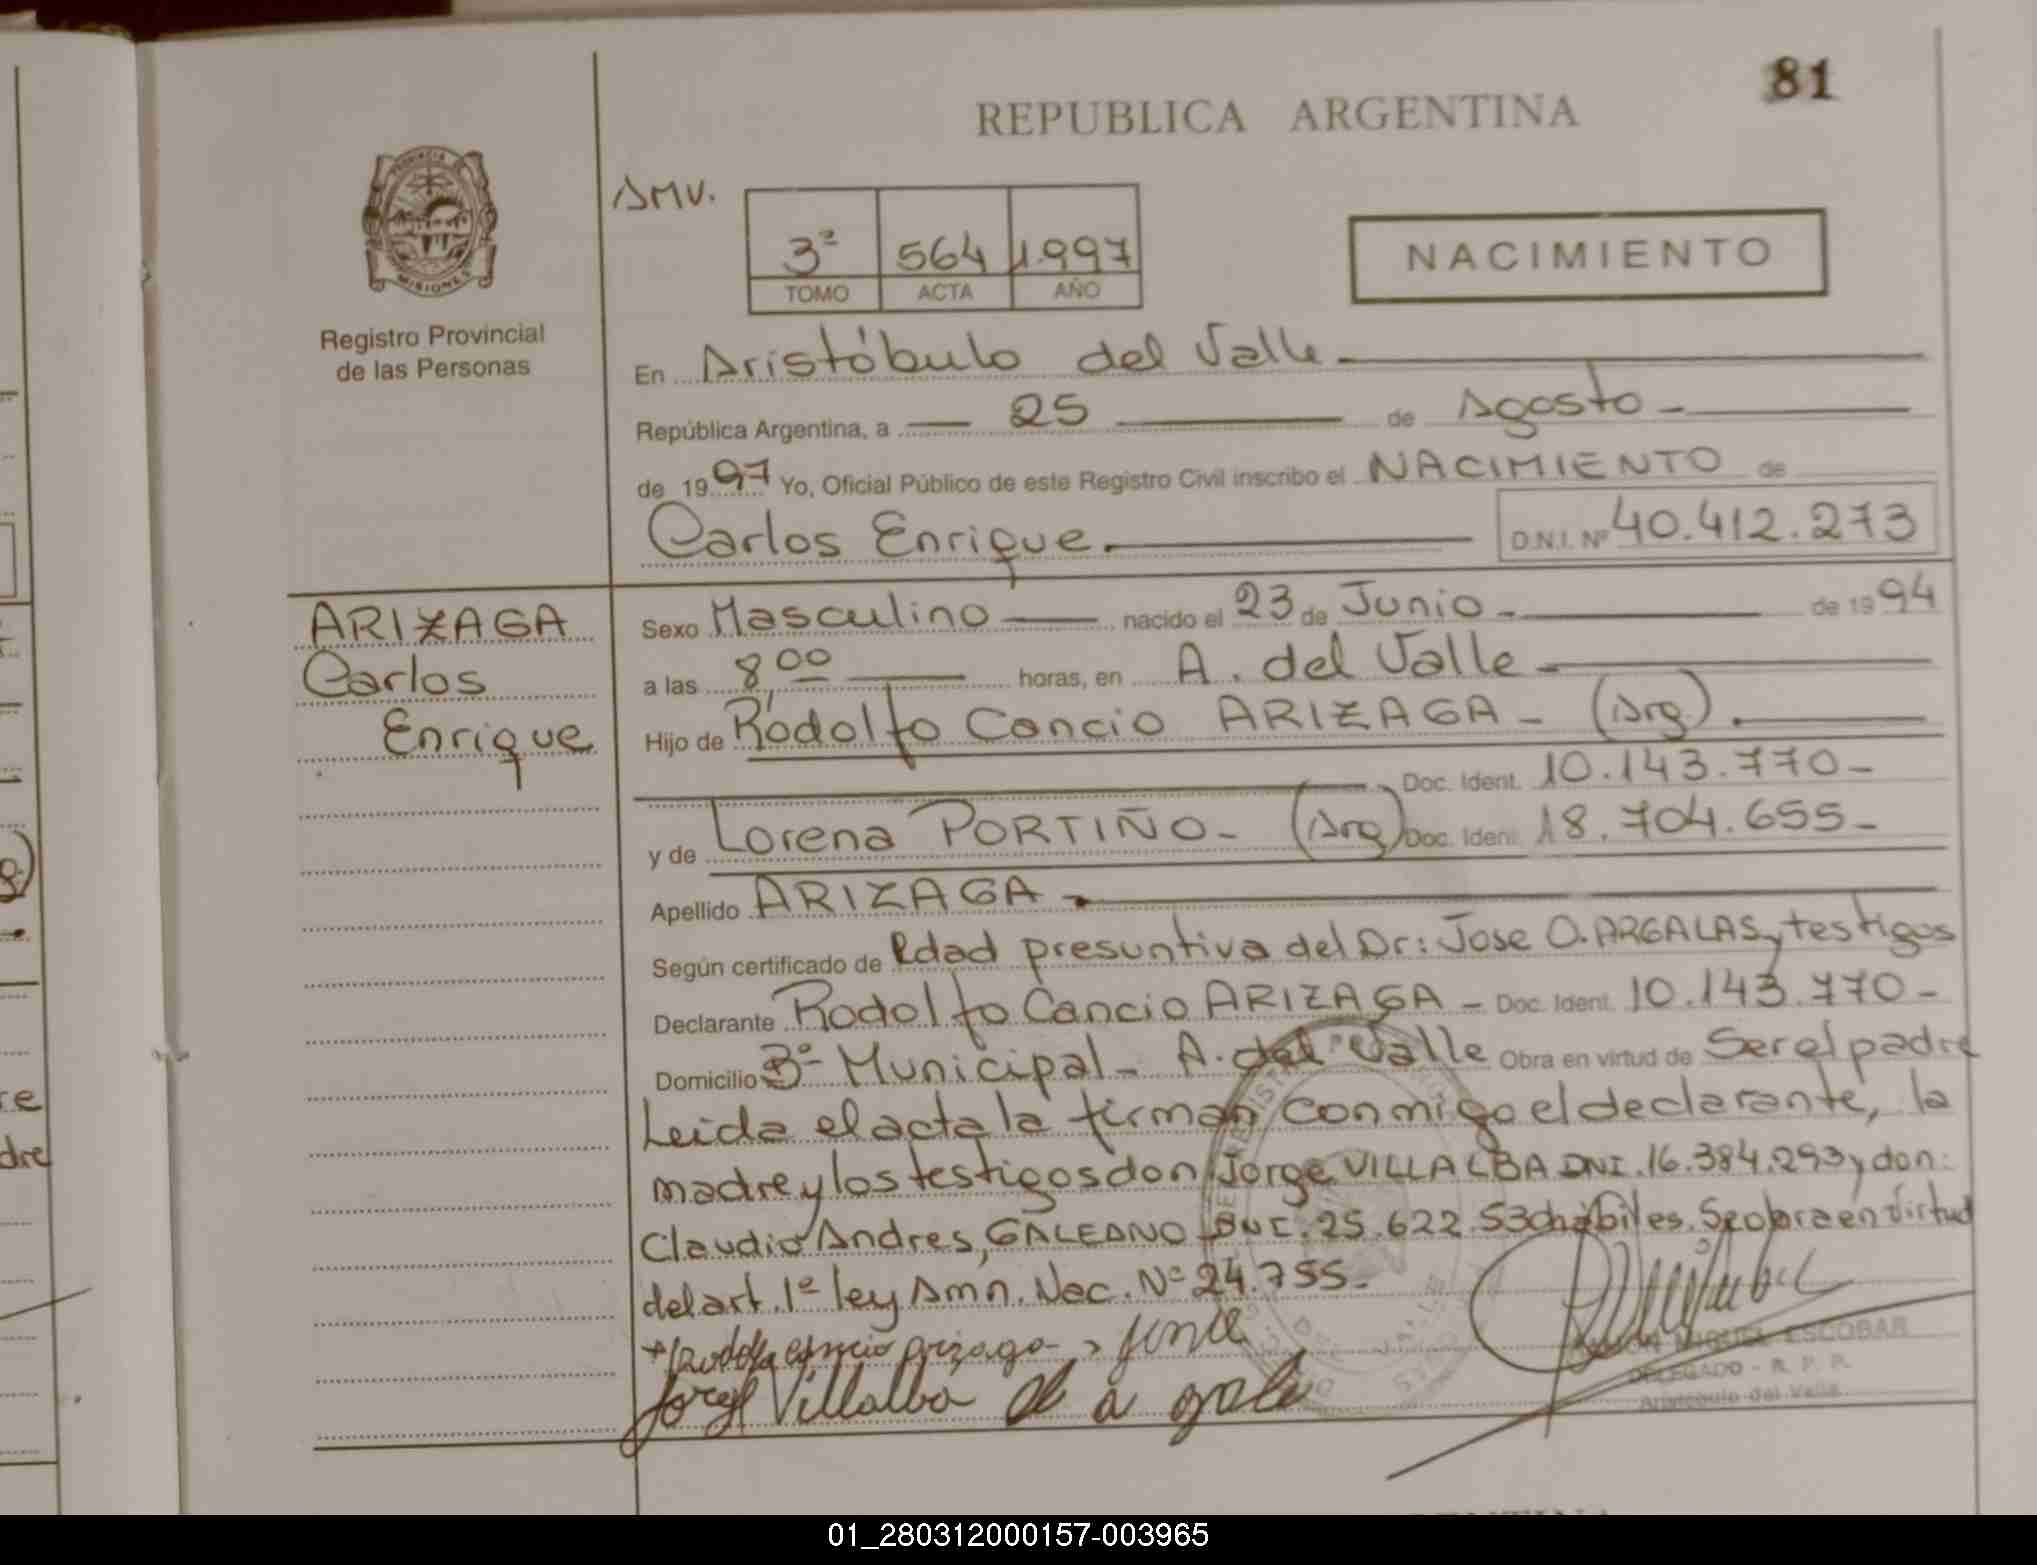 81
REPUBLICA ARGENTINA
PROVINCIA DE
MISIONES
Registro Provincial
de las Personas
AMV.
3º 564 1.997
TOMO ACTA AÑO
NACIMIENTO
En Aristóbulo del Valle
República Argentina, a 25 de Agosto
de 1997 Yo, Oficial Público de este Registro Civil inscribo el NACIMIENTO de
Carlos Enrique. D.N.I. Nº 40.412.273
ARIZAGA
Carlos
Enrique
Sexo Masculino nacido el 23 de Junio de 1994
a las 8,00 horas, en A. del Valle
Hijo de Rodolfo Cancio ARIZAGA - (Arg).
Doc. Ident. 10.143.770-
y de Lorena PORTIÑO- (Arg) Doc. Ident. 18.704.655-
Apellido ARIZAGA
Según certificado de Edad presuntiva del Dr: Jose O. ARGALAS y testigos
Declarante Rodolfo Cancio ARIZAGA - Doc. Ident. 10.143.770-
Domicilio Bº Municipal - A. del Valle Obra en virtud de Ser el padre
Leida el acta la firman conmigo el declarante, la
madre y los testigos don Jorge VILLALBA DNI. 16.384.293 y don:
Claudio Andres, GALEANO DNI. 25.622.530 habiles. Se obra en virtud
del art. 1º ley Amn. Nac. Nº 24.755-
Rodolfo cancio arizaga
Jorge Villalba
MIGUEL ESCOBAR
DELEGADO - R. P. P.
Aristobulo del Valle
01_280312000157-003965